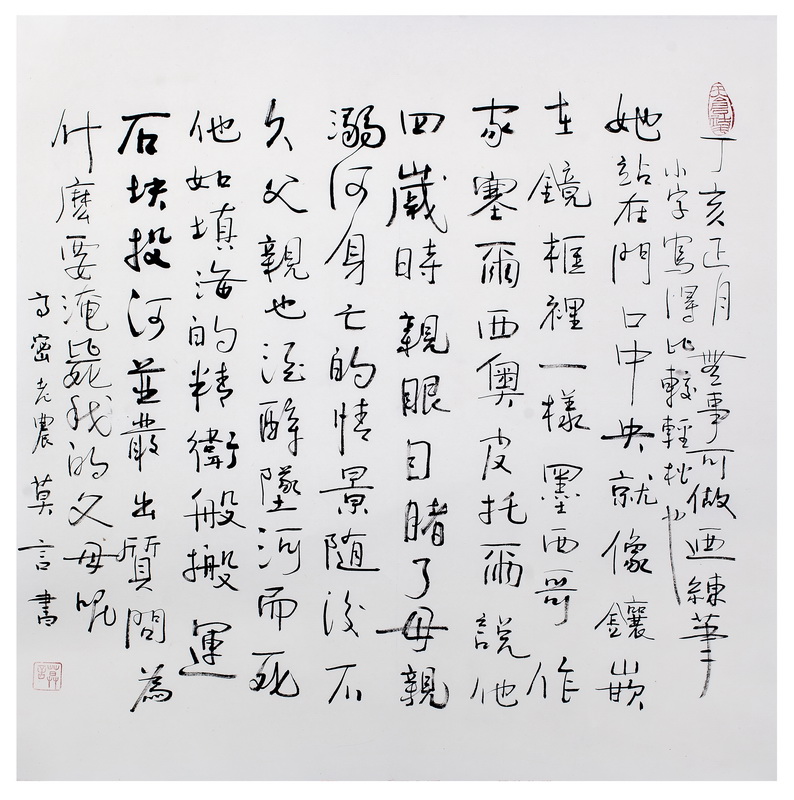 丁亥正月無事可做迺練筆
小字寫得比較輕松也
她站在門口中央就像鑲嵌
在鏡框裡一樣墨西哥作
家塞爾西奧皮托爾說他
四歲時親眼目睹了母親
溺河身亡的情景隨後不
久父親也酒醉墜河而死
他如填海的精衛般搬運
石块投河並發出質問為
什麼要淹毙我的父母呢
高密老農莫言書